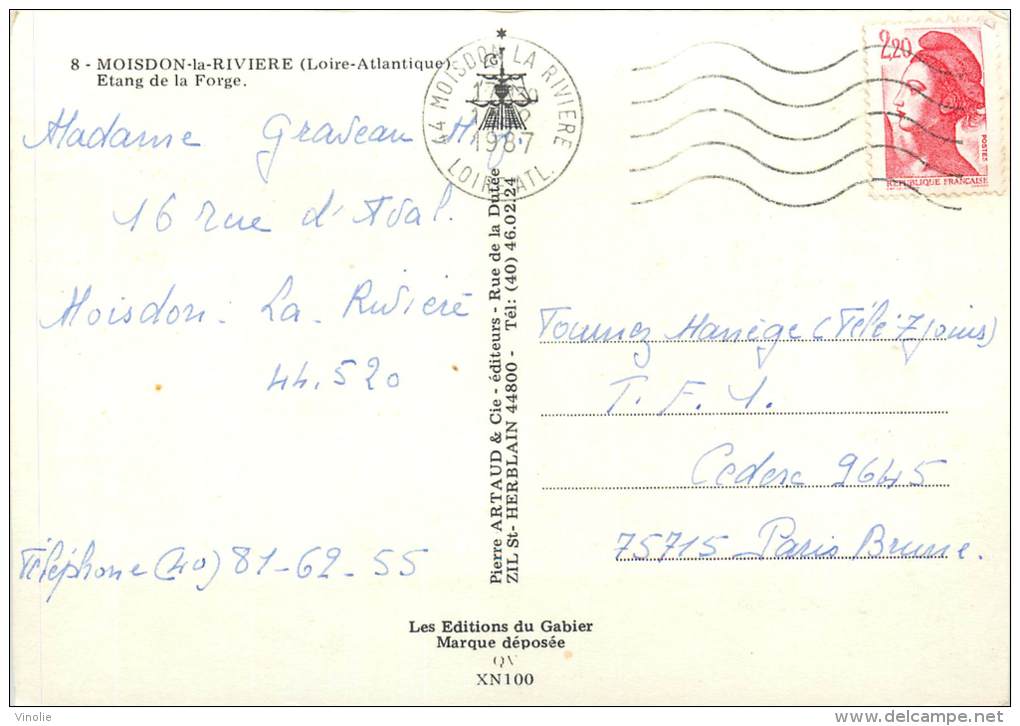 8 - MOISDON-la-RIVIERE (Loire-Atlantique)
Etang de la Forge.
44 MOISDON LA RIVIERE
1987
LOIRE ATL.
2,20
POSTES
REPUBLIQUE FRANÇAISE
Madame Graveau
16 rue d'Aval.
Moisdon. La. Rivière
44.520
Téléphone (40) 81-62-55
Pierre ARTAUD & Cie - éditeurs - Rue de la Dutée
ZIL St-HERBLAIN 44800 - Tél: (40) 46.02.24
Tournez Manège (Télé 7 jours)
T. F. 1.
Cedex 9645
75715 Paris Brune.
Les Editions du Gabier
Marque déposée
XN100
Vinolie
delcampe.net